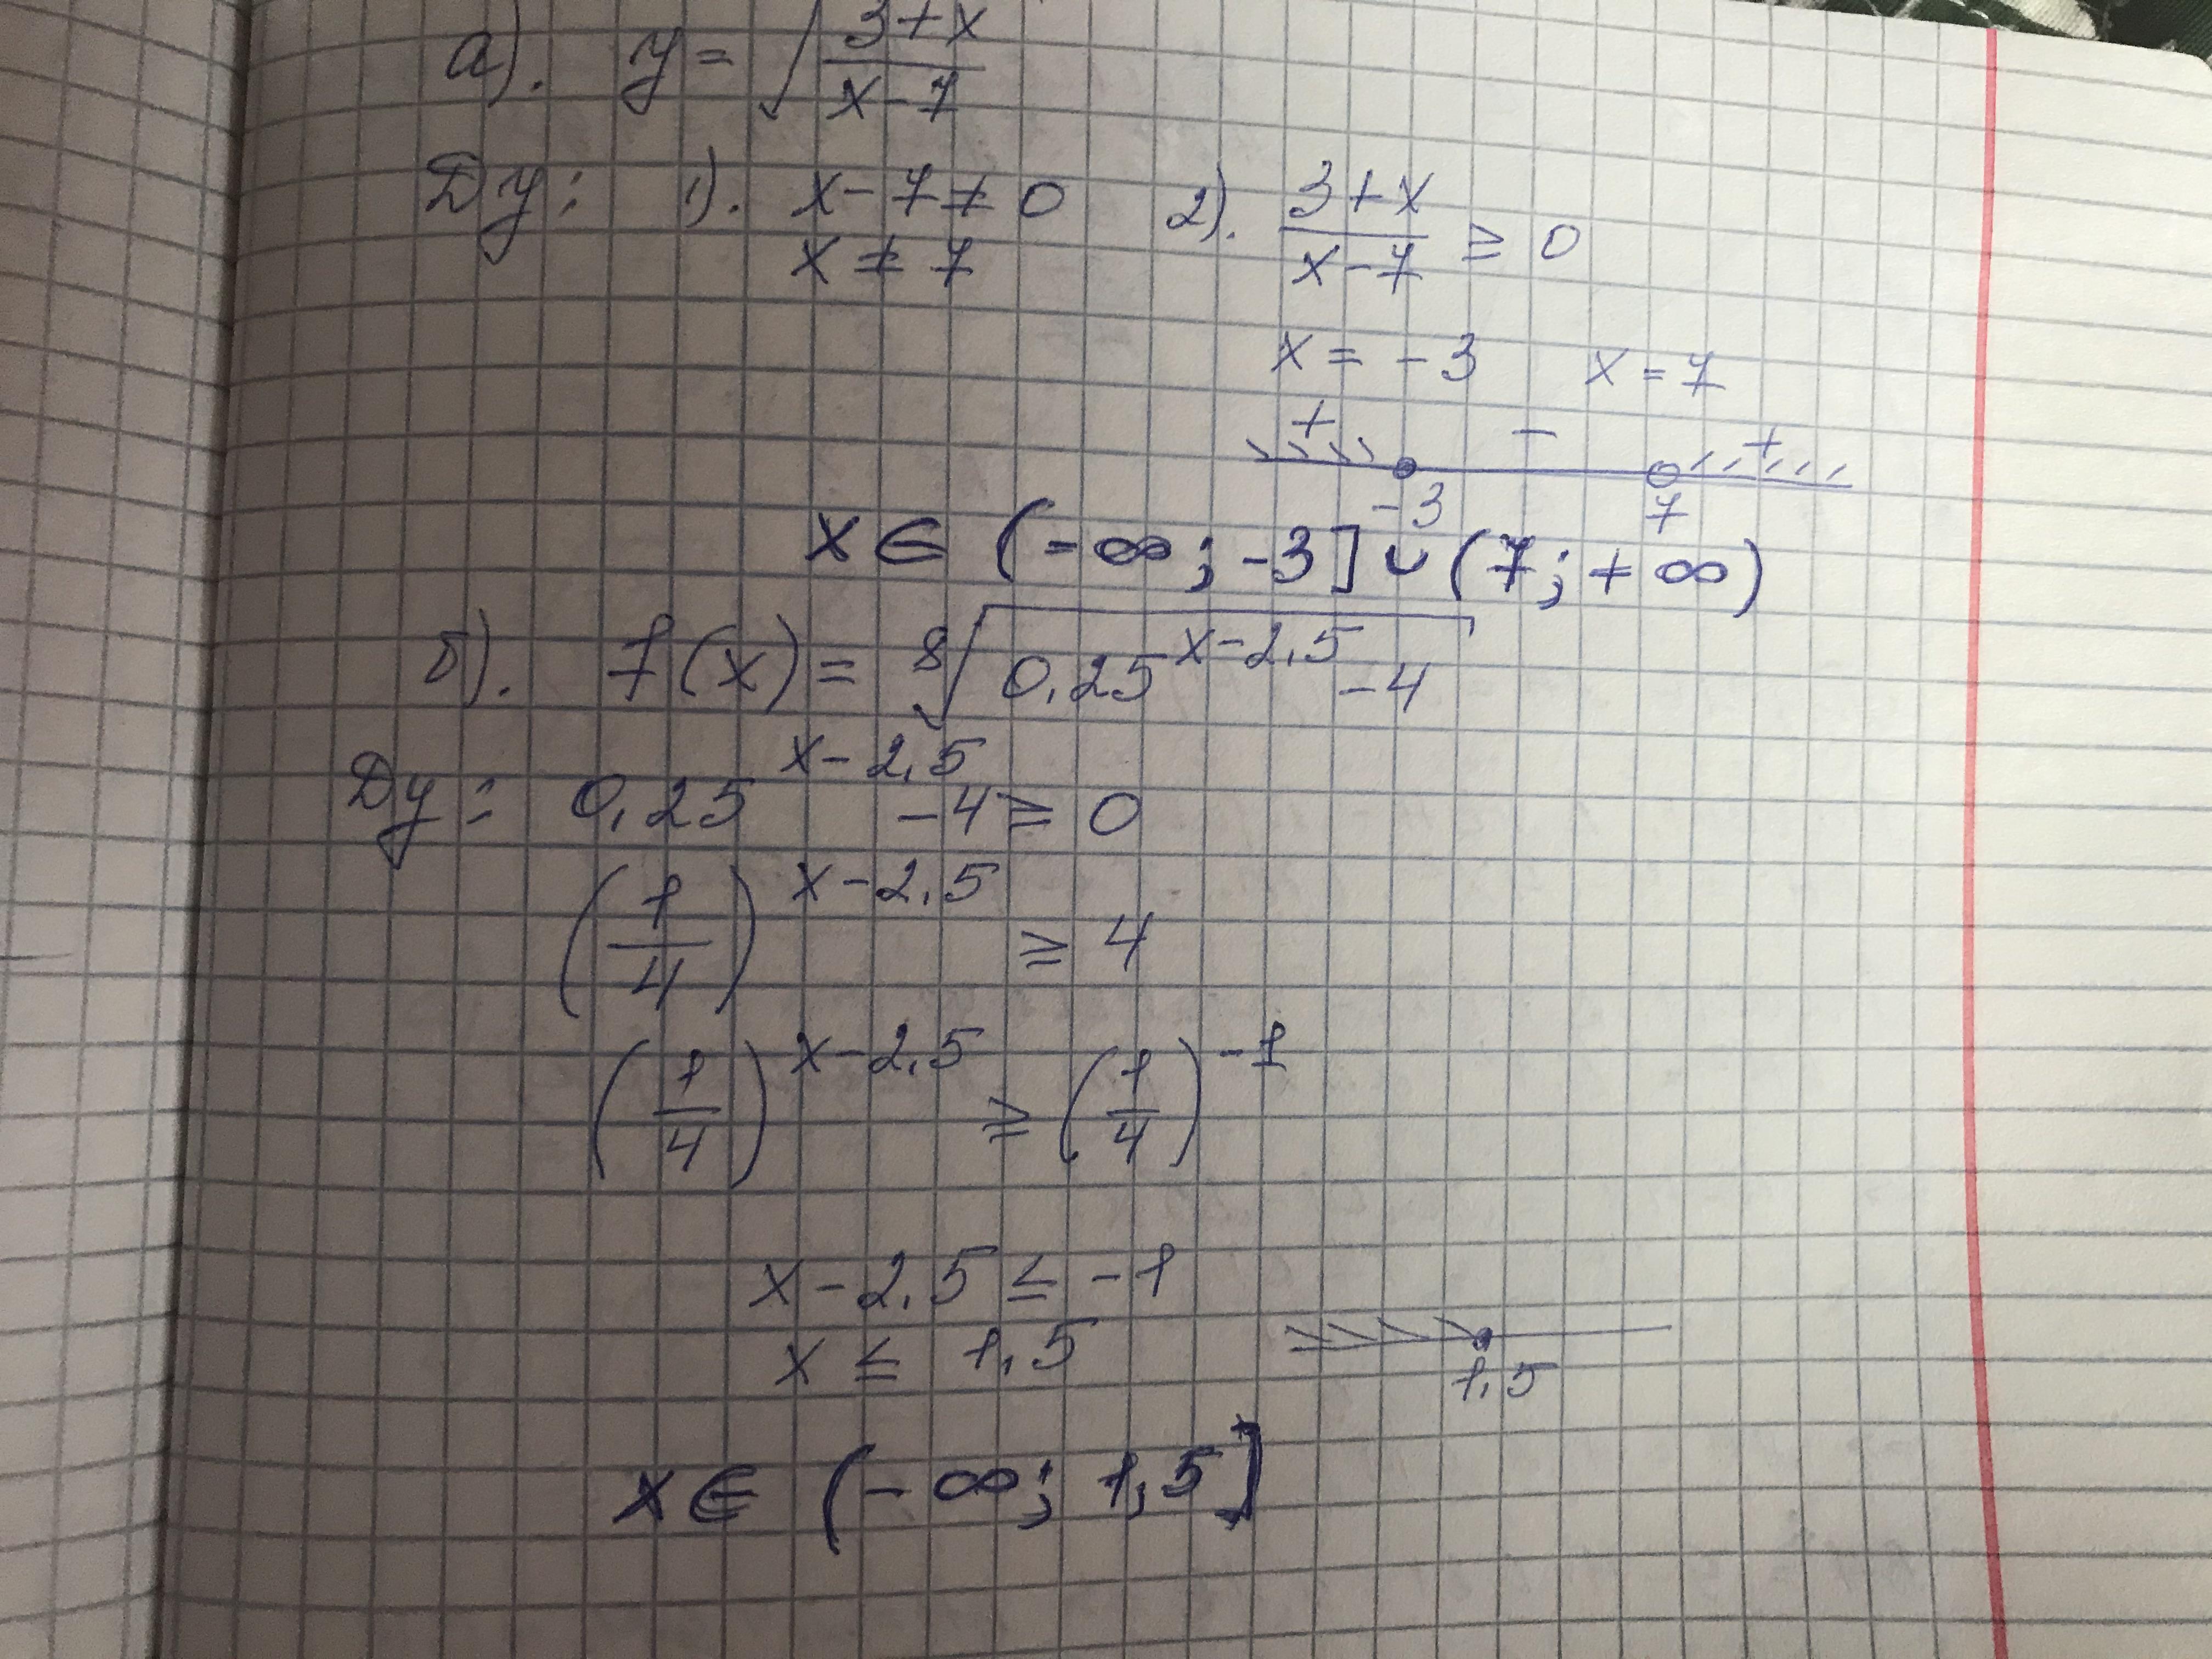 а). y = √(3+x)/(x-7)
Dy: 1). x-7≠0 2). (3+x)/(x-7) ≥ 0
x≠7
x = -3 x = 7
+ - +
-3 7
x∈ (-∞; -3] ∪ (7; +∞)
б). f(x) = ⁸√(0,25^(x-2,5) -4)
Dy: 0,25^(x-2,5) -4 ≥ 0
(1/4)^(x-2,5) ≥ 4
(1/4)^(x-2,5) ≥ (1/4)^(-1)
x-2,5 ≤ -1
x ≤ 1,5
1,5
x∈ (-∞; 1,5]